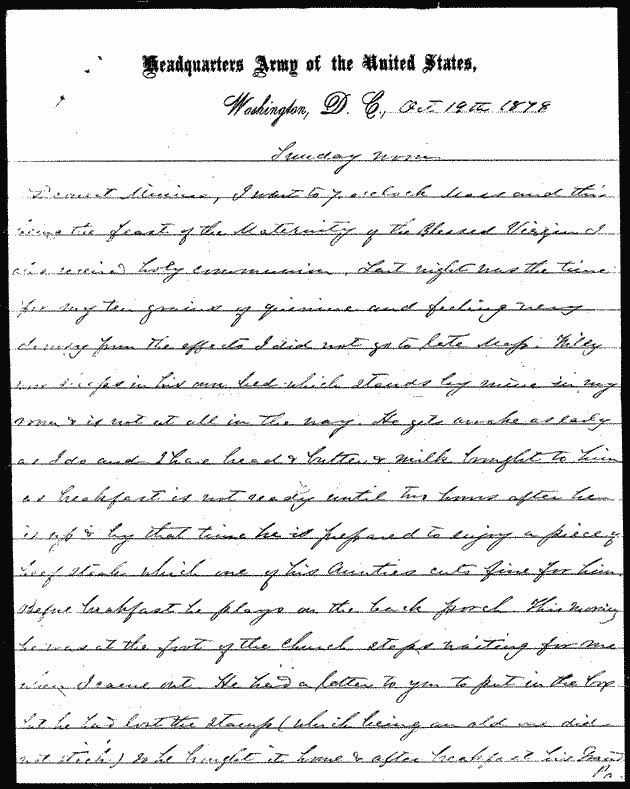 Headquarters Army of the United States,
Washington, D. C., Oct 19th 1878
Sunday noon.
Dearest Minnie, I went to 7 o'clock Mass and this
being the feast of the Maternity of the Blessed Virgin I
also received holy communion. Last night was the time
for my ten grains of quinine and feeling very
drowsy from the effects I did not go to late Mass. Willy
now sleeps in his own bed which stands by mine in my
room & is not at all in the way. He gets awake as early
as I do and I have bread & butter & milk brought to him
as breakfast is not ready until two hours after he
is up & by that time he is prepared to enjoy a piece of
beef steak which one of his Aunties cuts fine for him.
Before breakfast he plays on the back porch This morning
he was at the foot of the Church steps waiting for me
when I came out. He had a letter to you to put in the box
but he had lost the stamp (which being an old one did
not stick) so he brought it home & after breakfast his Grand
Pa